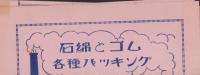 石綿とゴム
各種パッキング